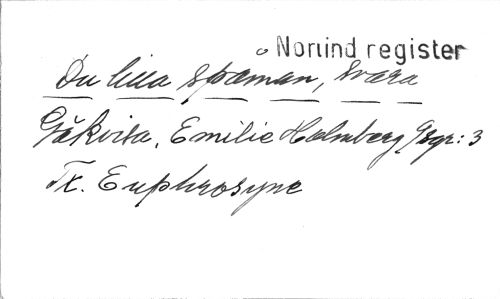 Norlind register
Du lilla spåman, svara
Gåkvisa, Emilie Holmberg, Sgr: 3
Tx. Euphrosyne